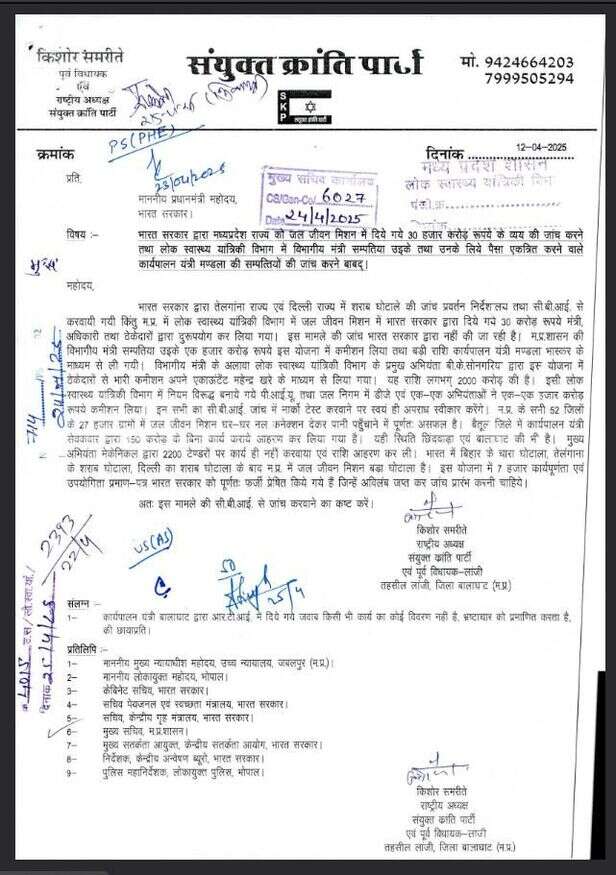 किशोर समरीते
पुर्व विधायक
एवं
राष्ट्रीय अध्यक्ष
संयुक्त क्रांति पार्टी
संयुक्त क्रांति पार्टी
SKP
संयुक्त क्रांति पार्टी
मो. 9424664203
7999505294
PS(PHE)
23/04/2025
क्रमांक
दिनांक 12-04-2025
मुख्य सचिव कार्यालय
CS/Gen-Co/ 6027
Date 24/4/2025
मध्य प्रदेश शासन
लोक स्वास्थ्य यांत्रिकी विभाग
प्रति,
माननीय प्रधानमंत्री महोदय,
भारत सरकार।
विषय :- भारत सरकार द्वारा मध्यप्रदेश राज्य को जल जीवन मिशन में दिये गये 30 हजार करोड़ रूपये के व्यय की जांच करने
तथा लोक स्वास्थ्य यांत्रिकी विभाग में विभागीय मंत्री सम्पतिया उइके तथा उनके लिये पैसा एकत्रित करने वाले
कार्यपालन यंत्री मण्डला की सम्पत्तियों की जांच करने बाबद्।
महोदय,
भारत सरकार द्वारा तेलगांना राज्य एवं दिल्ली राज्य में शराब घोटाले की जांच प्रवर्तन निर्देशालय तथा सी.बी.आई. से
करवायी गयी किंतु म.प्र. में लोक स्वास्थ्य यांत्रिकी विभाग में जल जीवन मिशन में भारत सरकार द्वारा दिये गये 30 करोड़ रूपये मंत्री,
अधिकारी तथा ठेकेदारों द्वारा दुरूपयोग कर लिया गया। इस मामले की जांच भारत सरकार द्वारा नहीं की जा रही है। म.प्र.शासन की
विभागीय मंत्री सम्पतिया उइके एक हजार करोड़ रूपये इस योजना में कमीशन लिया तथा बड़ी राशि कार्यपालन यंत्री मण्डला भास्कर के
माध्यम से ली गयी। विभागीय मंत्री के अलावा लोक स्वास्थ्य यांत्रिकी विभाग के प्रमुख अभियंता बी.के.सोनगरिया द्वारा इस योजना में
ठेकेदारों से भारी कमीशन अपने एकाऊंटेंट महेन्द्र खरे के माध्यम से लिया गया। यह राशि लगभग 2000 करोड़ की है। इसी लोक
स्वास्थ्य यांत्रिकी विभाग में नियम विरूद्ध बनाये गये पी.आई.यू. तथा जल निगम में डीजे एवं एक-एक अभियंताओं ने एक-एक हजार करोड़
रूपये कमीशन लिया। इन सभी का सी.बी.आई. जांच में नार्को टेस्ट करवाने पर स्वयं ही अपराध स्वीकार करेंगे। म.प्र. के सभी 52 जिलों
के 27 हजार ग्रामों में जल जीवन मिशन घर-घर नल कनेक्शन देकर पानी पहुंचाने में पूर्णतः असफल है। बैतूल जिले में कार्यपालन यंत्री
द्वारा 150 करोड़ के बिना कार्य कराये आहरण कर लिया गया है। यही स्थिति छिंदवाड़ा एवं बालाघाट की भी है। मुख्य
अभियंता मेकेनिकल द्वारा 2200 टेण्डरों पर कार्य ही नहीं करवाया एवं राशि आहरण कर ली। भारत में बिहार के चारा घोटाला, तेलंगाना
के शराब घोटाला, दिल्ली का शराब घोटाला के बाद म.प्र. में जल जीवन मिशन बडा घोटाला है। इस योजना में 7 हजार कार्यपूर्णता एवं
उपयोगिता प्रमाण-पत्र भारत सरकार को पूर्णतः फर्जी प्रेषित किये गये हैं जिन्हें अविलंब जप्त कर जांच प्रारंभ करनी चाहिये।
अतः इस मामले की सी.बी.आई. से जांच करवाने का कष्ट करें।
किशोर समरीते
राष्ट्रीय अध्यक्ष
संयुक्त क्रांति पार्टी
एवं पूर्व विधायक-लांजी
तहसील लांजी, जिला बालाघाट (म.प्र.)
2393
22/4
US(AS)
50
25/4
संलग्न :-
1- कार्यपालन यंत्री बालाघाट द्वारा आर.टी.आई. में दिये गये जवाब किसी भी कार्य का कोई विवरण नहीं है, भ्रष्टाचार को प्रमाणित करता है,
की छायाप्रति।
प्रतिलिपि :-
1- माननीय मुख्य न्यायाधीश महोदय, उच्च न्यायालय, जबलपुर (म.प्र.)।
2- माननीय लोकायुक्त महोदय, भोपाल।
3- केबिनेट सचिव, भारत सरकार।
4- सचिव पेयजल एवं स्वच्छता मंत्रालय, भारत सरकार।
5- सचिव, केन्द्रीय गृह मंत्रालय, भारत सरकार।
6- मुख्य सचिव, म.प्र.शासन।
7- मुख्य सतर्कता आयुक्त, केन्द्रीय सतर्कता आयोग, भारत सरकार।
8- निर्देशक, केन्द्रीय अन्वेषण ब्यूरो, भारत सरकार।
9- पुलिस महानिर्देशक, लोकायुक्त पुलिस, भोपाल।
दिनांक 25/4/25
किशोर समरीते
राष्ट्रीय अध्यक्ष
संयुक्त क्रांति पार्टी
एवं पूर्व विधायक-लांजी
तहसील लांजी, जिला बालाघाट (म.प्र.)